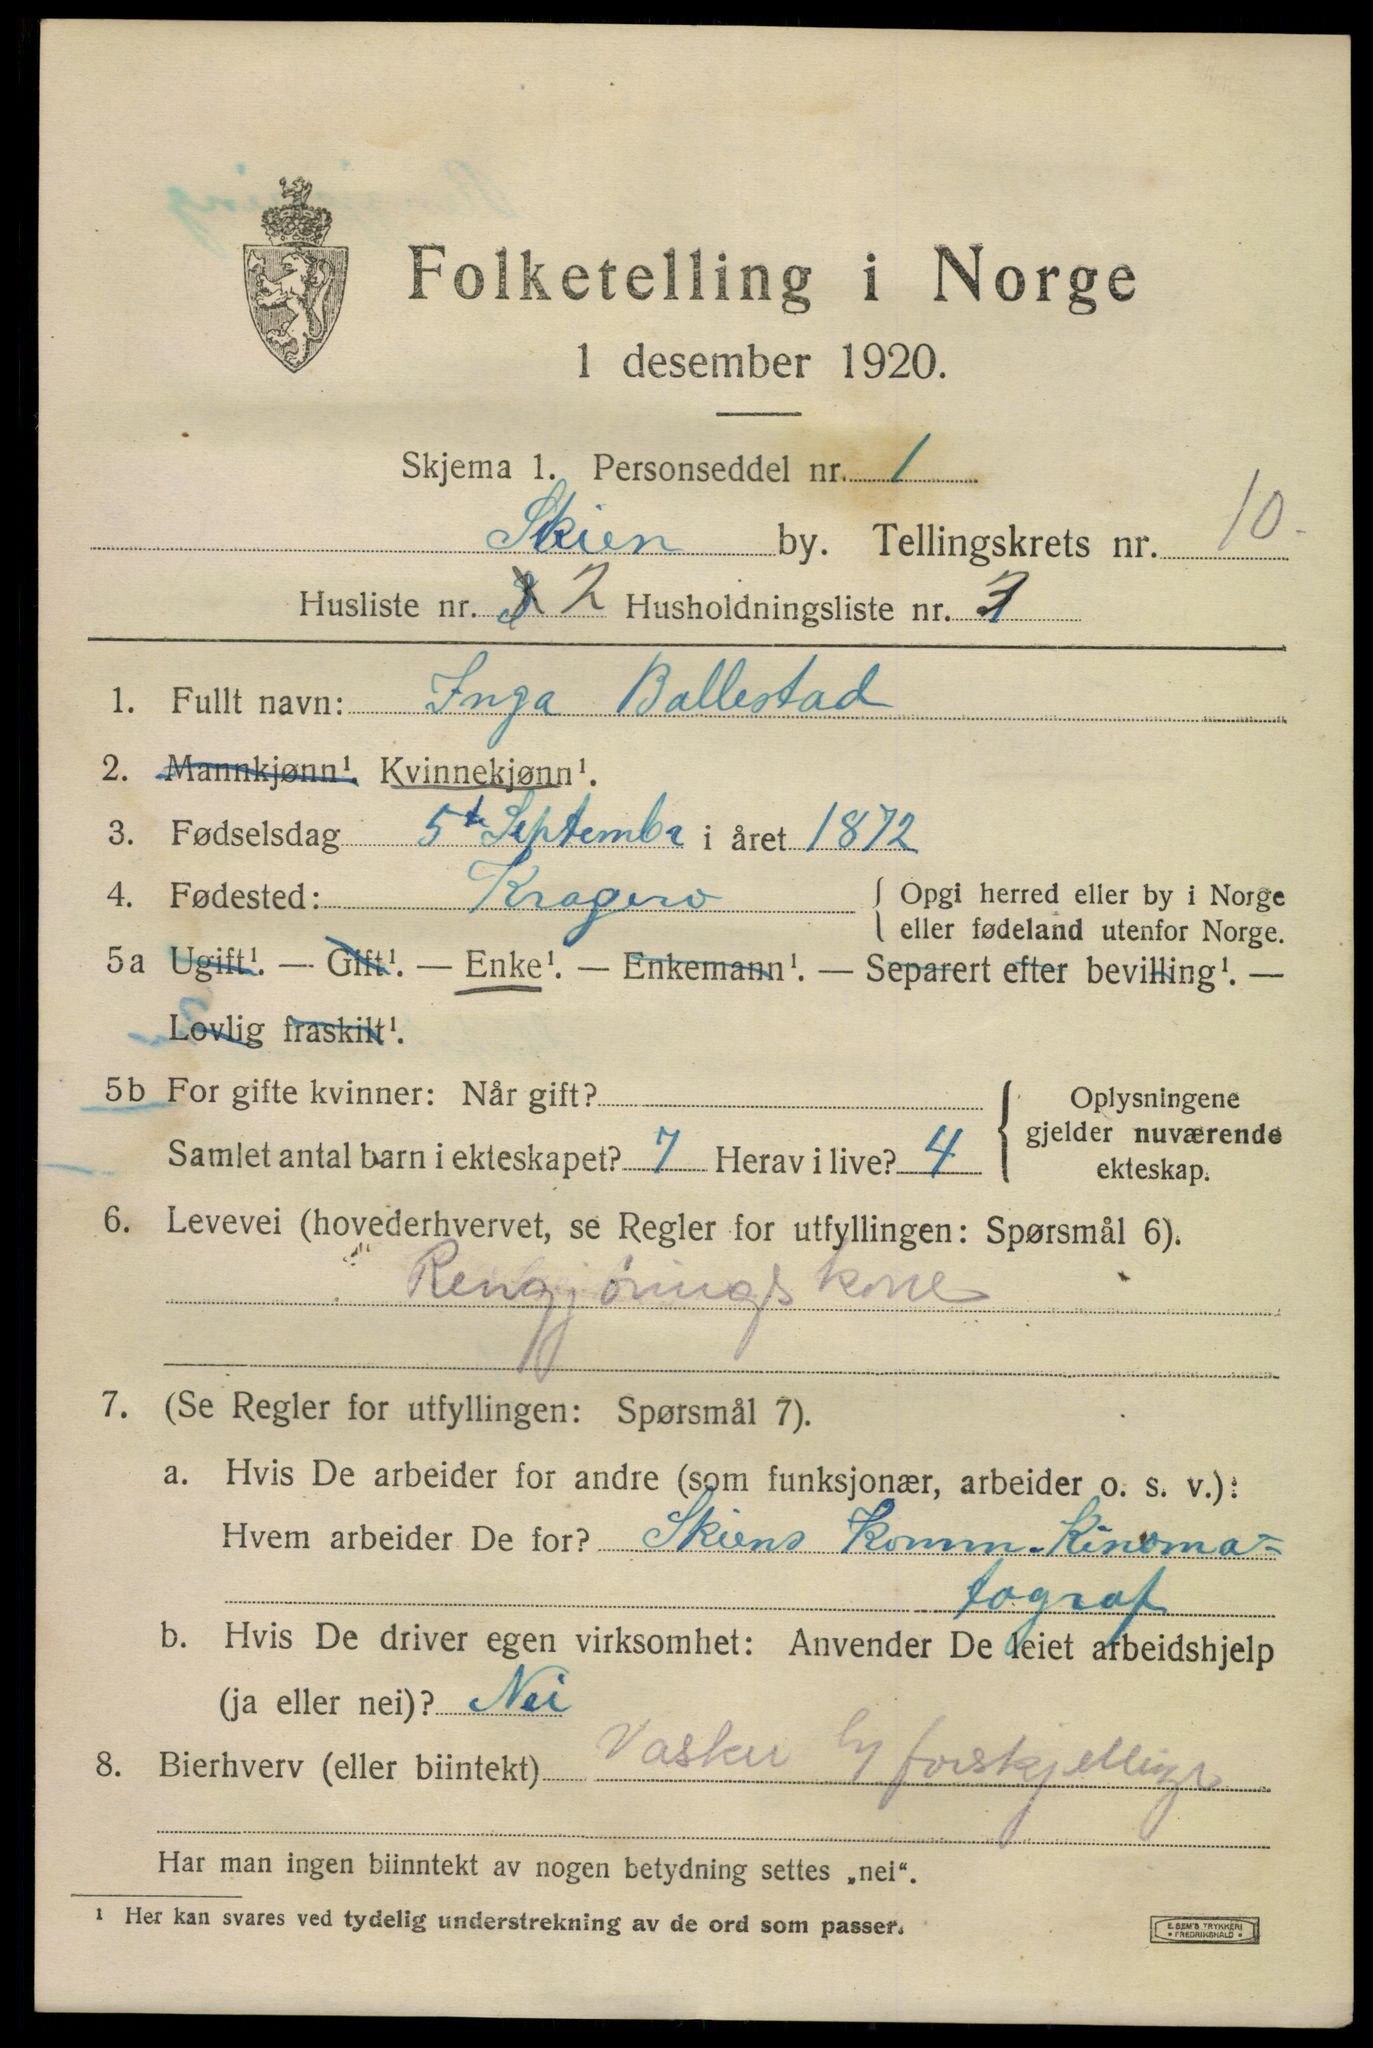 Folketelling i Norge
1 desember 1920.
Skjema 1. Personseddel nr. 1
Skien by. Tellingskrets nr. 10.
Husliste nr. 2 Husholdningsliste nr.
1. Fullt navn: Inga Ballestad
2. Mannkjønn¹. Kvinnekjønn¹.
3. Fødselsdag 5te Septembr i året 1872
4. Fødested: Kragerø { Opgi herred eller by i Norge
eller fødeland utenfor Norge.
5a Ugift¹. — Gift¹. — Enke¹. — Enkemann¹. — Separert efter bevilling¹. —
Lovlig fraskilt¹.
5b For gifte kvinner: Når gift? { Oplysningene
gjelder nuværende
Samlet antal barn i ekteskapet? 7 Herav i live? 4
ekteskap.
6. Levevei (hovederhvervet, se Regler for utfyllingen: Spørsmål 6).
Rengjøringskone
7. (Se Regler for utfyllingen: Spørsmål 7).
a. Hvis De arbeider for andre (som funksjonær, arbeider o. s. v.):
Hvem arbeider De for? Skiens Komm. Kinoma-
tograf
b. Hvis De driver egen virksomhet: Anvender De leiet arbeidshjelp
(ja eller nei)? Nei
8. Bierhverv (eller biintekt) Vasker hj forskjellige
Har man ingen biinntekt av nogen betydning settes „nei“.
¹ Her kan svares ved tydelig understrekning av de ord som passer.
E. SEM'S TRYKKERI
• FREDRIKSHALD •